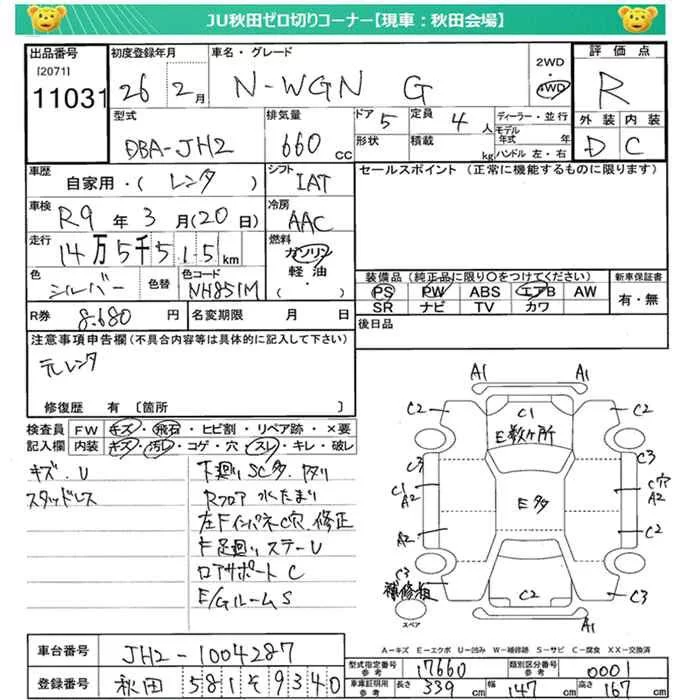 JU秋田ゼロ切りコーナー【現車：秋田会場】
出品番号
[2071]
11031
初度登録年月
26年 2月
車名・グレード
N-WGN G
2WD
・
4WD
評価点
R
外装 内装
D C
型式
DBA-JH2
排気量
660 cc
ドア 5
形状
定員 4人
積載 kg
ディーラー・並行
モデル年式 年
ハンドル 左・右
車歴
自家用・( レンタ )
シフト
IAT
セールスポイント (正常に機能するものに限ります)
車検
R9年 3月(20日)
冷房
AAC
走行
14万5千515km
燃料
ガソリン
軽油・
( )
色
シルバー
色替
色コード
NH851M
装備品(純正品に限り○をつけてください)
PS PW ABS エアB AW
SR ナビ TV カワ
新車保証書
有・無
R券 8,680円
名変期限 月 日
後日品
注意事項申告欄(不具合内容等は具体的に記入して下さい)
元レンタ
修復歴 有 〔箇所 〕
検査員記入欄
FW キズ・飛石・ヒビ割・リペア跡・×要
内装 キズ・汚レ・コゲ・穴・スレ・キレ・破レ
キズ.U
スタッドレス
下廻りSC多.
Rフロア 水たまり
左FインパネC穴.修正
F足廻り ステーU
ロアサポートC
E/GルームS
A1 A1
C2 C1 C2
E数ヶ所
C3 C3
C1 A2 E多 C穴 A2
A2 C2
C3
補修粗
C2 C3
スペア
A1 A1
A=キズ E=エクボ U=凹み W=補修跡 S=サビ C=腐食 XX=交換済
車台番号 JH2-1004287
登録番号 秋田 581 そ 9340
型式指定番号 参考 17660
類別区分番号 参考 0001
車庫証明用 参考 長さ 339 cm 幅 147 cm 高さ 167 cm